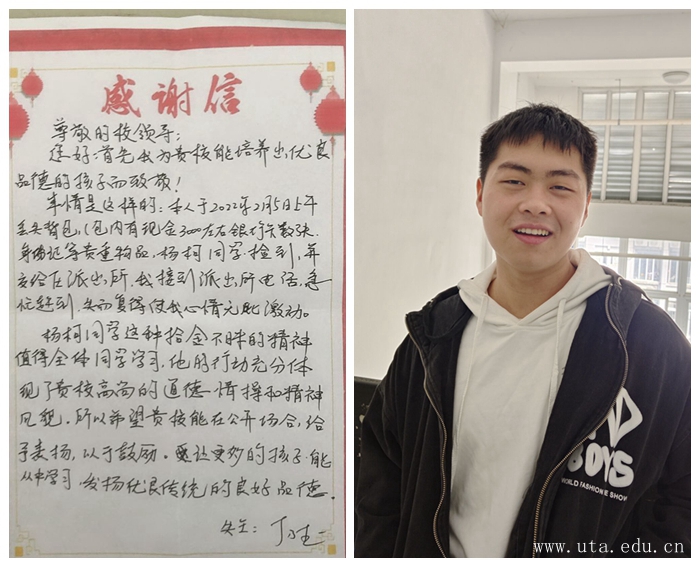 感谢信
尊敬的校领导：
您好！首先我为贵校能培养出优良
品德的孩子而致敬！
事情是这样的：本人于2022年2月5日上午
丢失背包，(包内有现金3000左右银行卡数张.
身份证等贵重物品，杨柯同学捡到，并
交给在派出所，我接到派出所电话，急
忙赶到，失而复得使我心情无比激动。
杨柯同学这种拾金不昧的精神
值得全体同学学习，他的行动充分体
现了贵校高尚的道德情操和精神
风貌。所以希望贵校能在公开场合，给
予表扬，以于鼓励。要让更多的孩子能
从中学习，发扬优良传统的良好品德.
失主：丁
BOYS
WORLD FASHION E SHOW
www.uta.edu.cn